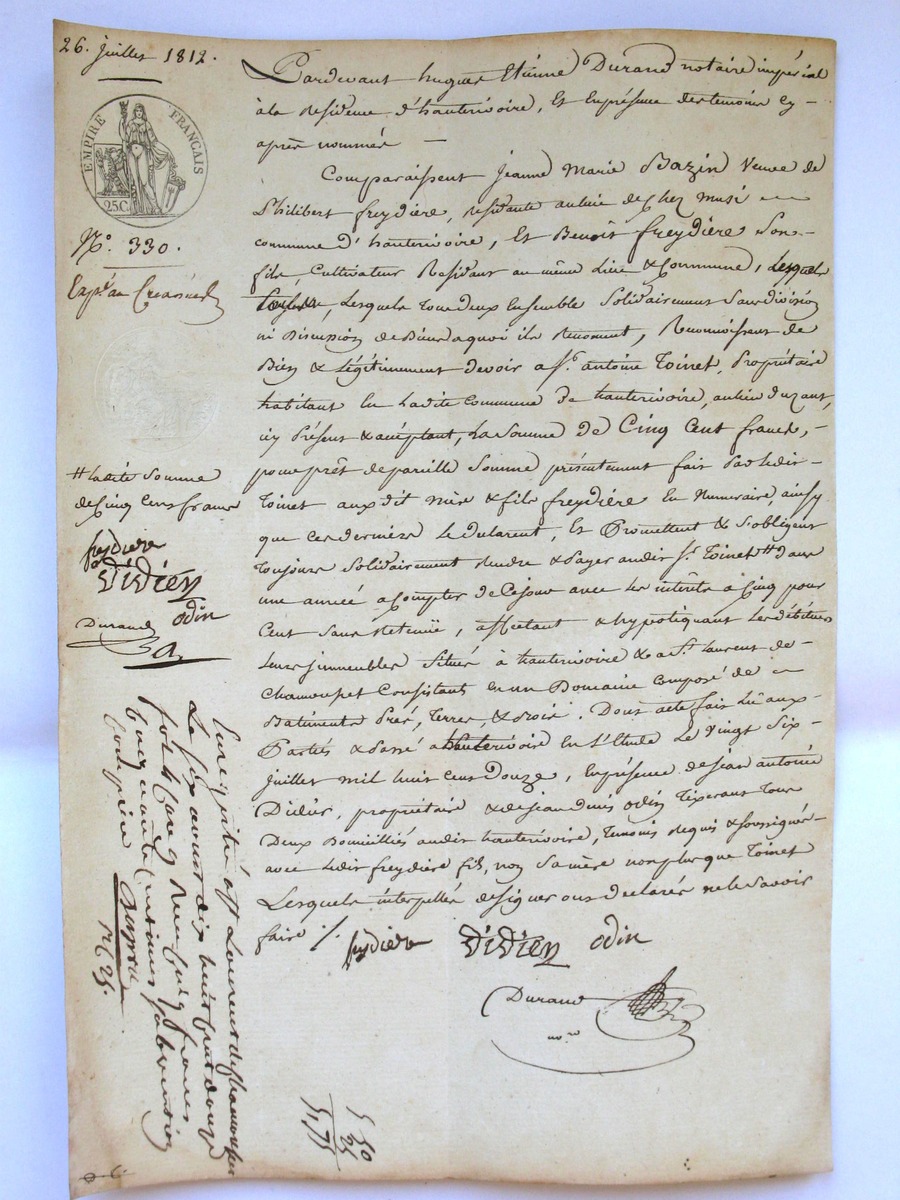 26. juillet 1812.
EMPIRE FRANÇAIS
25 C.
N.o 330.
Exp.é au Créancier
Pardevant hugues Etienne Durand notaire impérial
à la Résidence d'hauterivoire, Et Enprésence des temoins cy-
après nommés —
Comparaissent jeanne Marie Bazin Veuve de
Philibert freydière, residante aulieu de chez musi
commune d'hauterivoire, Et Benoit freydière Son
fils, Cultivateur Residant au même Lieu & Commune, Lesquels
Lesquels tous deux Ensemble Solidairement Sans division
ni Discussion de Biens aquoi ils Renoncent, Reconnoissent de
Bien & Légitimement devoir a S.r antoine Toinet, Propriétaire
habitant En Ladite Commune de hauterivoire, aulieu duzant,
icy Présent & acceptant, La Somme de Cinq Cent francs, -
pour prêt depareille Somme présentement fait Par Ledit
Toinet auxdit mère & fils freydière En Numeraire, ainsy
que ces derniers Le declarent, Et Promettent & S'obligent
Toujours Solidairement Rendre & Payer audit S.r Toinet # dans
une année a Compter de Cejour avec Les intérêts a Cinq pour
Cent Sans Retenuë, affectant & hypotiquant Les débiteurs
Leurs immeubles Situés à hauterivoire & a S.t Laurent de-
Chamousset Consistants En un Domaine Composé de
Batiments Prés, Terres, & Bois. Dont acte fait Lû aux
Parties & Passé a hauterivoire En L'Etude Le Vingt Six
juillet mil huit Cent Douze, Enprésence de jean antoine
Didier, propriétaire & de jean denis Odin Tixerant Tous
Deux Domiciliés audit hauterivoire, Temoins Requis & Soussignés
avec Ledit freydière fils, non Sa mère nonplus que Toinet
Lesquels interpellés designer ont Declarés ne le Savoir
faire /.
freydière Didier odin
Durand
no.re
# Ladite Somme
de Cinq Cens francs
freydiere
Didier
odin
Durand
Enregistré à St Laurent de Chamousset
Le six aout dix huit cent douze
fol. Reçu cinq francs
cinquante centimes subvention
5 50
55